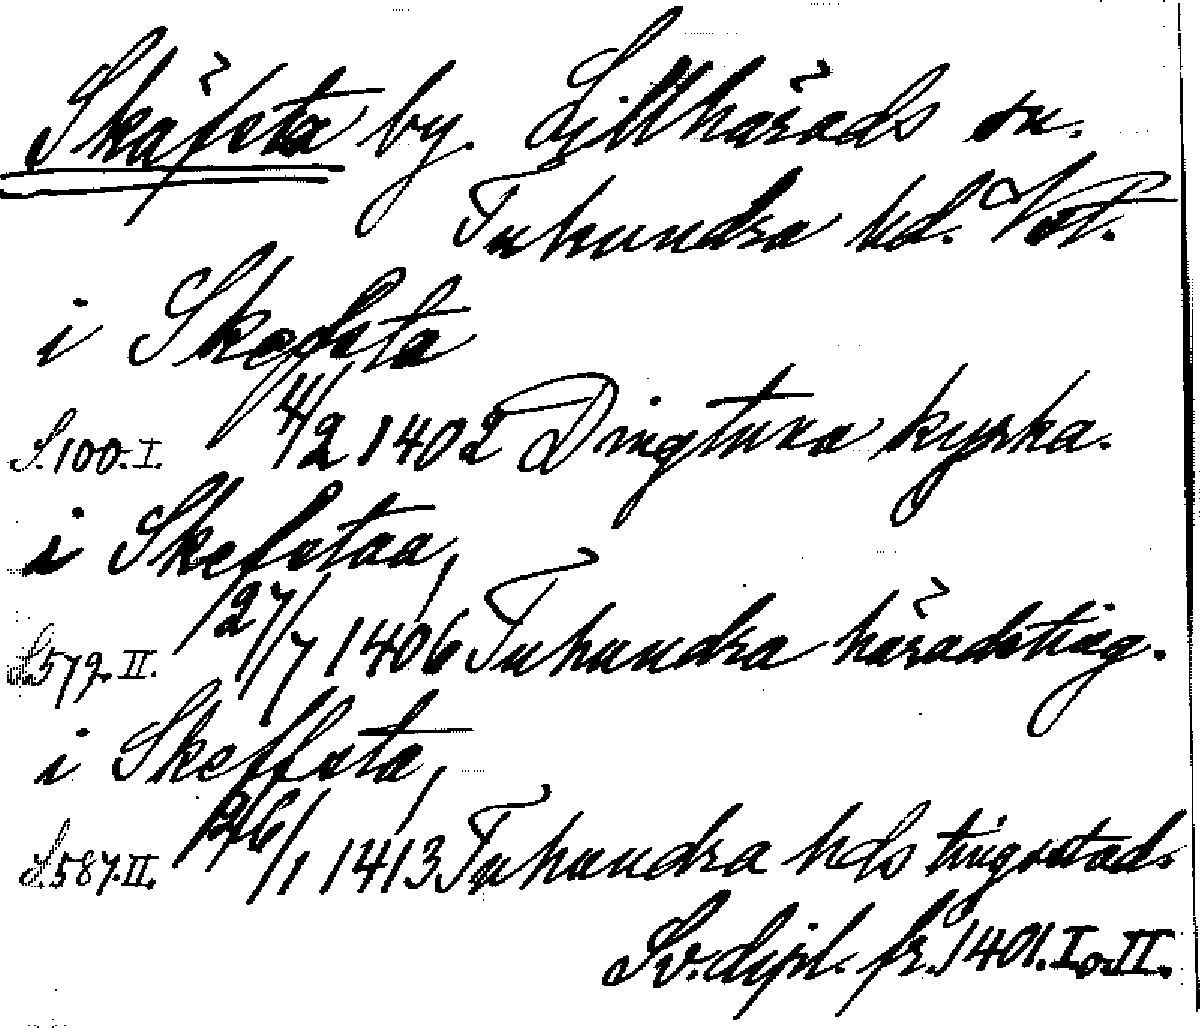 Skäfsta by. Lillhärads sn.
Tuhundra hd. Vstl.
i Skedfsta
S. 100. I. 4/2 1402 Dingtuna kyrka.
i Skefstaa,
S. 579. II. 27/7 1406 Tuhundra häradsting.
i Skeffsta,
S. 587. II. 26/1 1413 Tuhundra hds tingsstad.
Sv. dipl. fr. 1401. I. o. II.